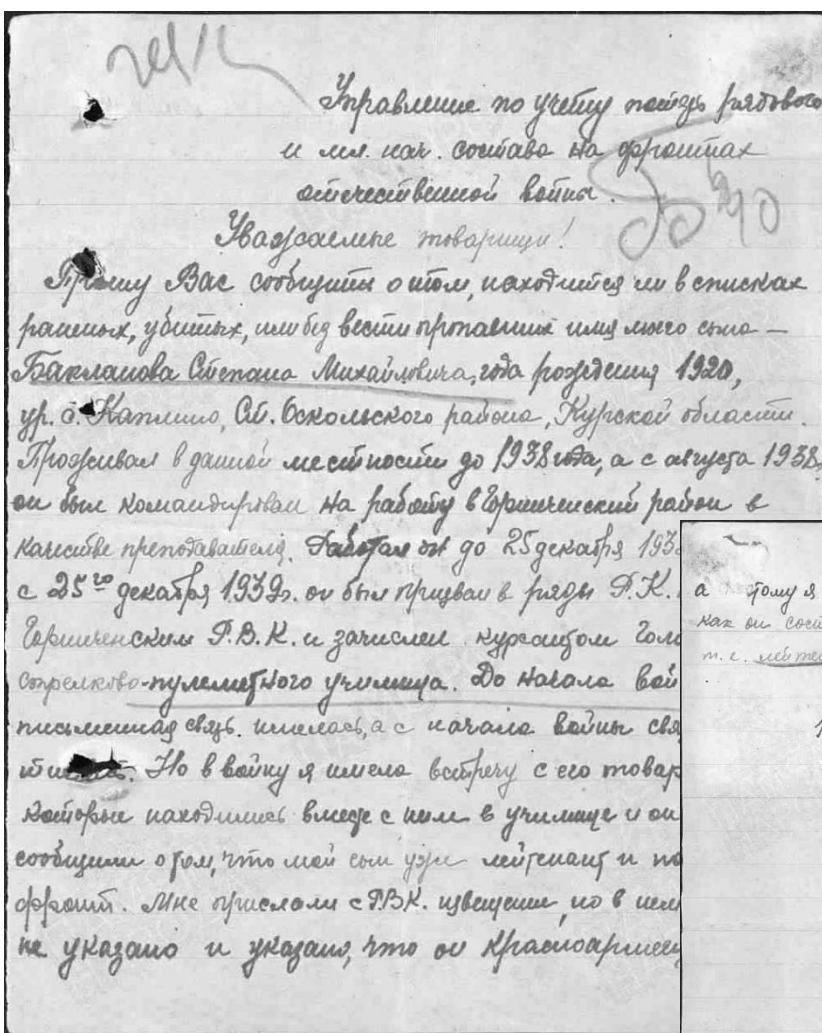 Управление по учету потерь рядового
и мл. нач. состава на фронтах
отечественной войны.
Уважаемые товарищи!
Прошу Вас сообщить о том, находится ли в списках
раненых, убитых, или без вести пропавших имя моего сына –
Бакланова Степана Михайловича, года рождения 1920,
ур. с. Каплино, Ст. Оскольского района, Курской области.
Проживал в данной местности до 1938 года, а с августа 1938
он был командирован на работу в Горшеченский район в
качестве преподавателя. Работал он до 25 декабря 193
с 25го декабря 1939г. он был призван в ряды Р.К.
Горшеченским Р.В.К. и зачислен курсантом
стрелково-пулеметного училища. До начала вой
письменная связь имелась, а с начала войны свя
Но в войну я имела встречу с его товар
которые находились вместе с ним в училище и он
сообщили о том, что мой сын уже лейтенант и по
фронт. Мне прислали с Р.В.К. извещение, но в нем
не указано и указано, что он красноармеец
а тому я
как он сост
т. е. лейтен